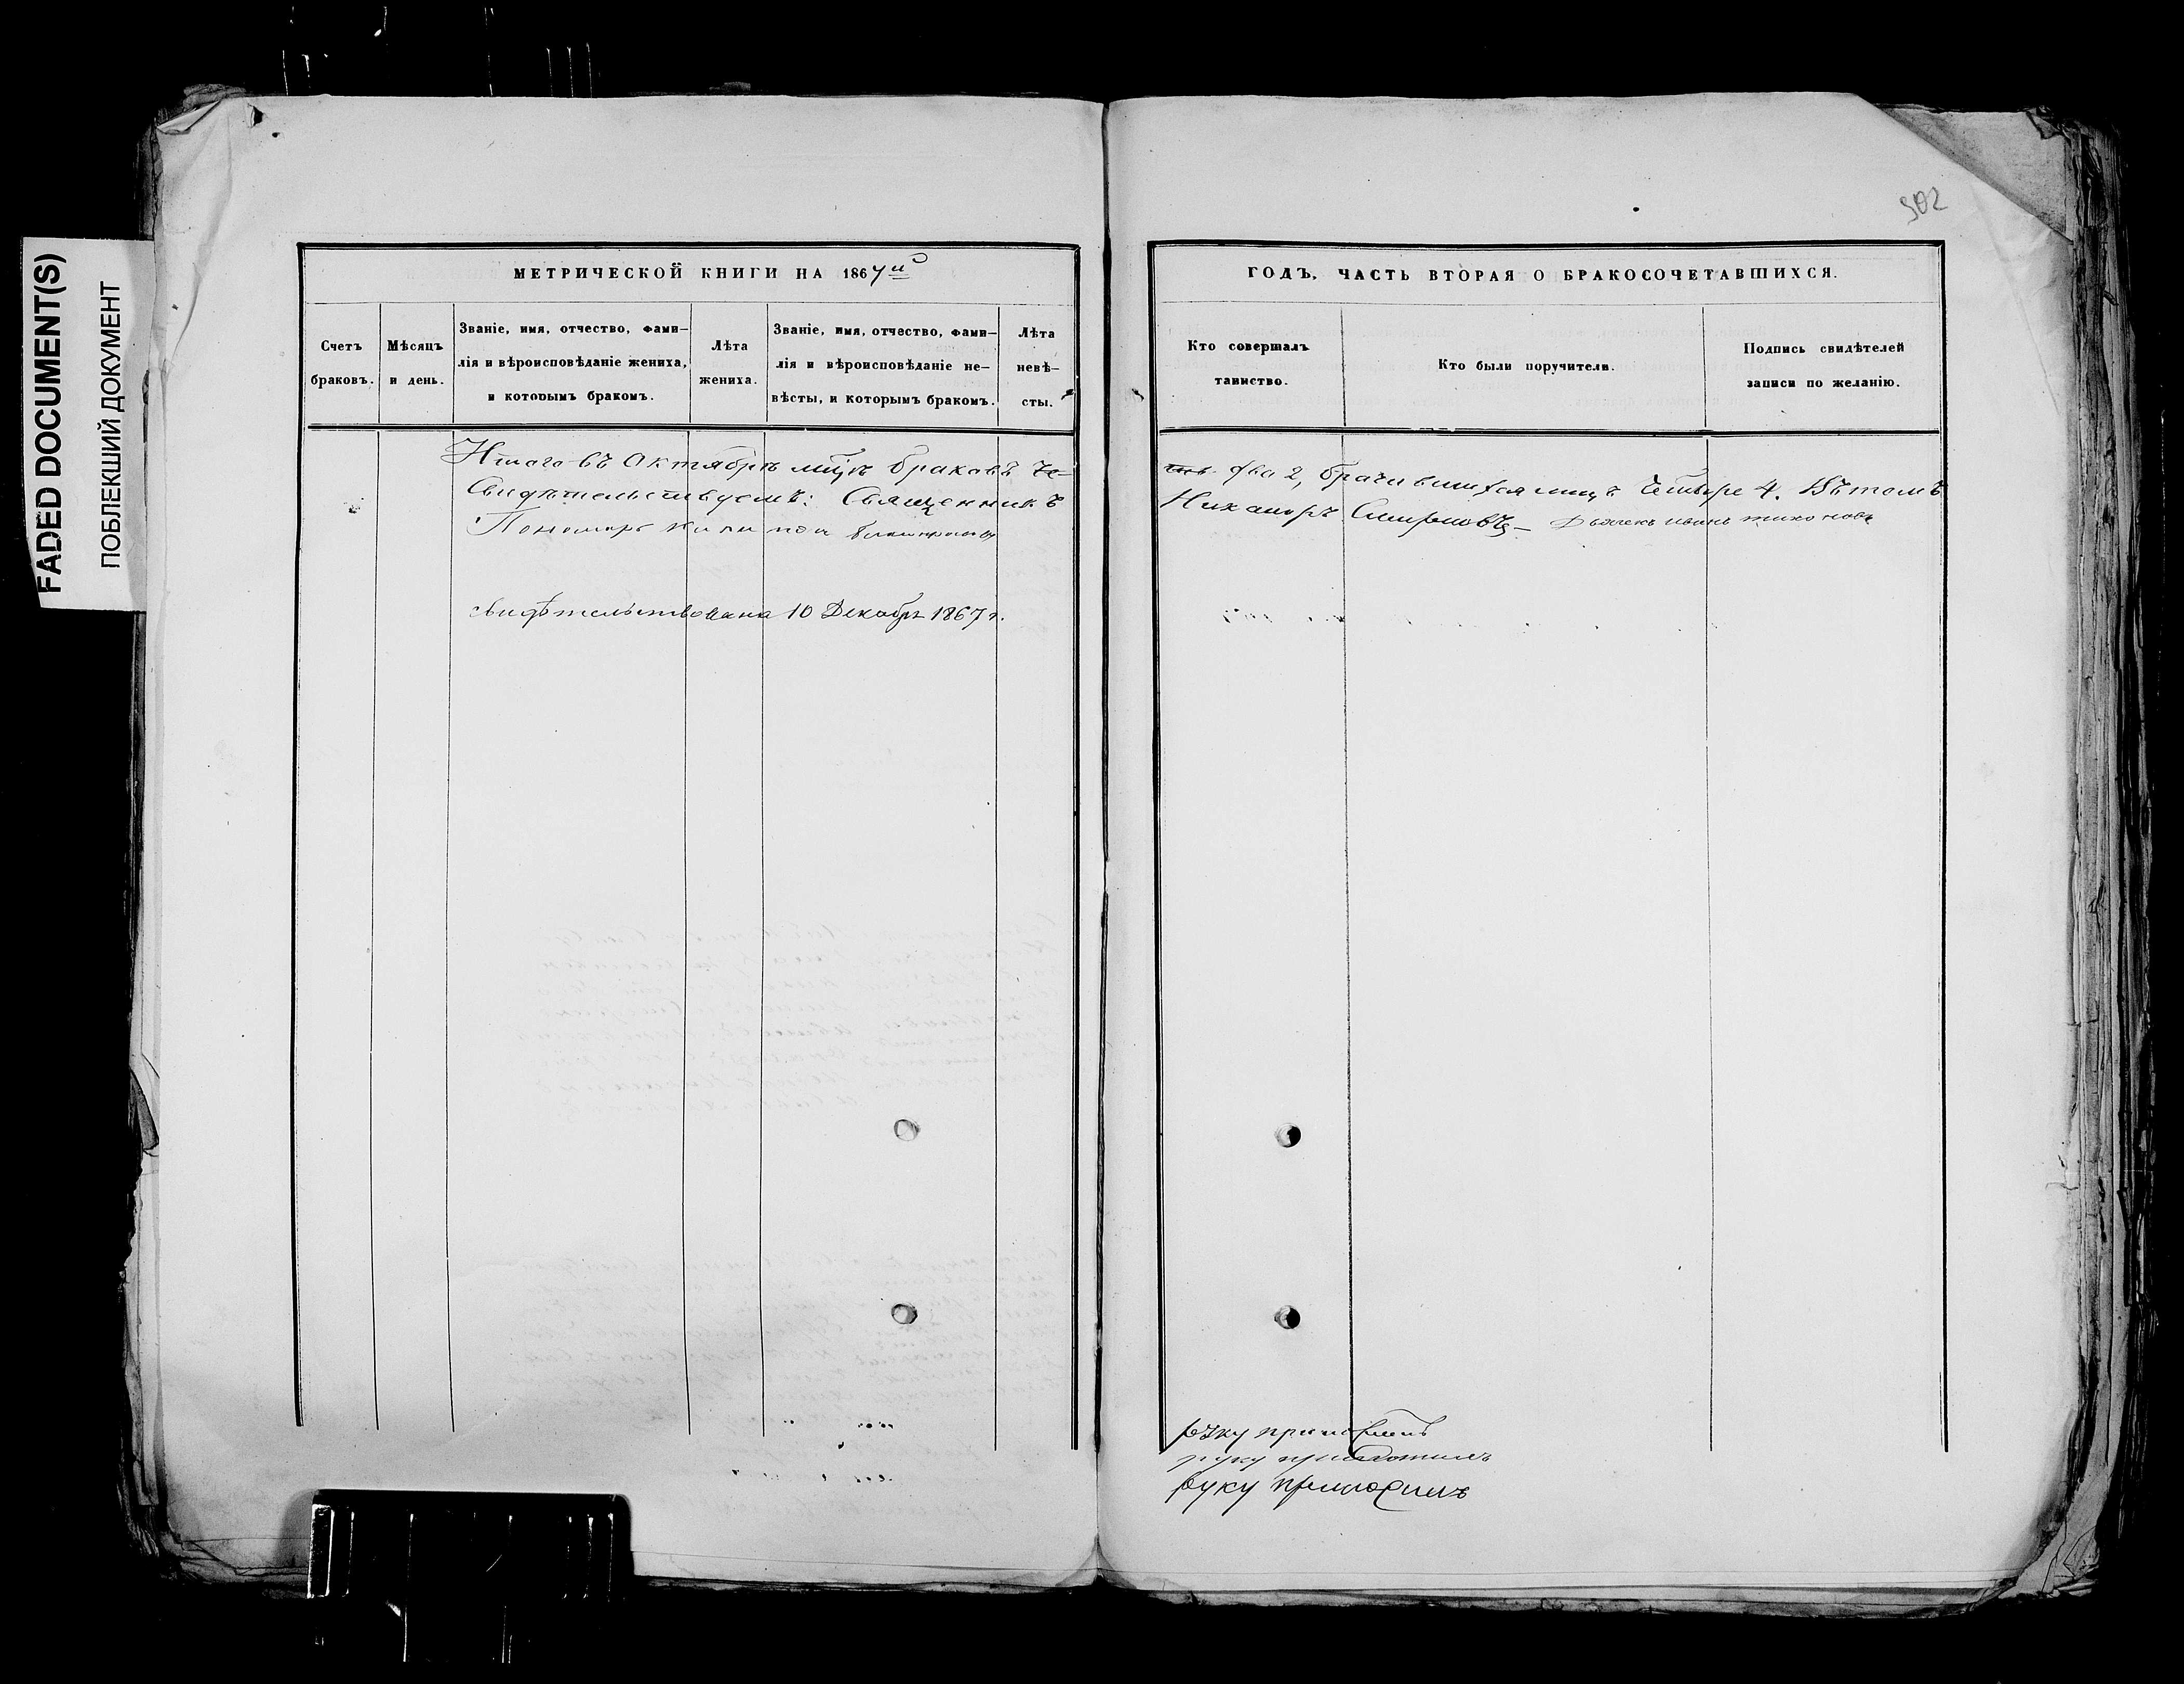 FADED DOCUMENT(S)
ПОБЛЕКШИЙ ДОКУМЕНТ
302
МЕТРИЧЕСКОЙ КНИГИ НА 1867й
Счетъ браковъ.
Мѣсяцъ и день.
Званіе, имя, отчество, фами-
лія и вѣроисповѣданіе жениха,
и которымъ бракомъ.
Лѣта жениха.
Званіе, имя, отчество, фами-
лія и вѣроисповѣданіе не-
вѣсты, и которымъ бракомъ.
Лѣта невѣ-
сты.
Итого въ Октябрѣ мцѣ браковъ че-
Свидѣтельствуемъ: Священникъ
Пономарь
свидѣтельствована 10 Декабря 1867 г.
ГОДЪ, ЧАСТЬ ВТОРАЯ О БРАКОСОЧЕТАВШИХСЯ.
Кто совершалъ
таинство.
Кто были поручители.
Подпись свидѣтелей
записи по желанію.
два 2, брачившихся лицъ четыре 4. Вѣтомъ
Никаноръ Смирновъ – Дьячекъ Иванъ Тихоновъ
руку приложилъ
руку приложилъ
руку приложилъ